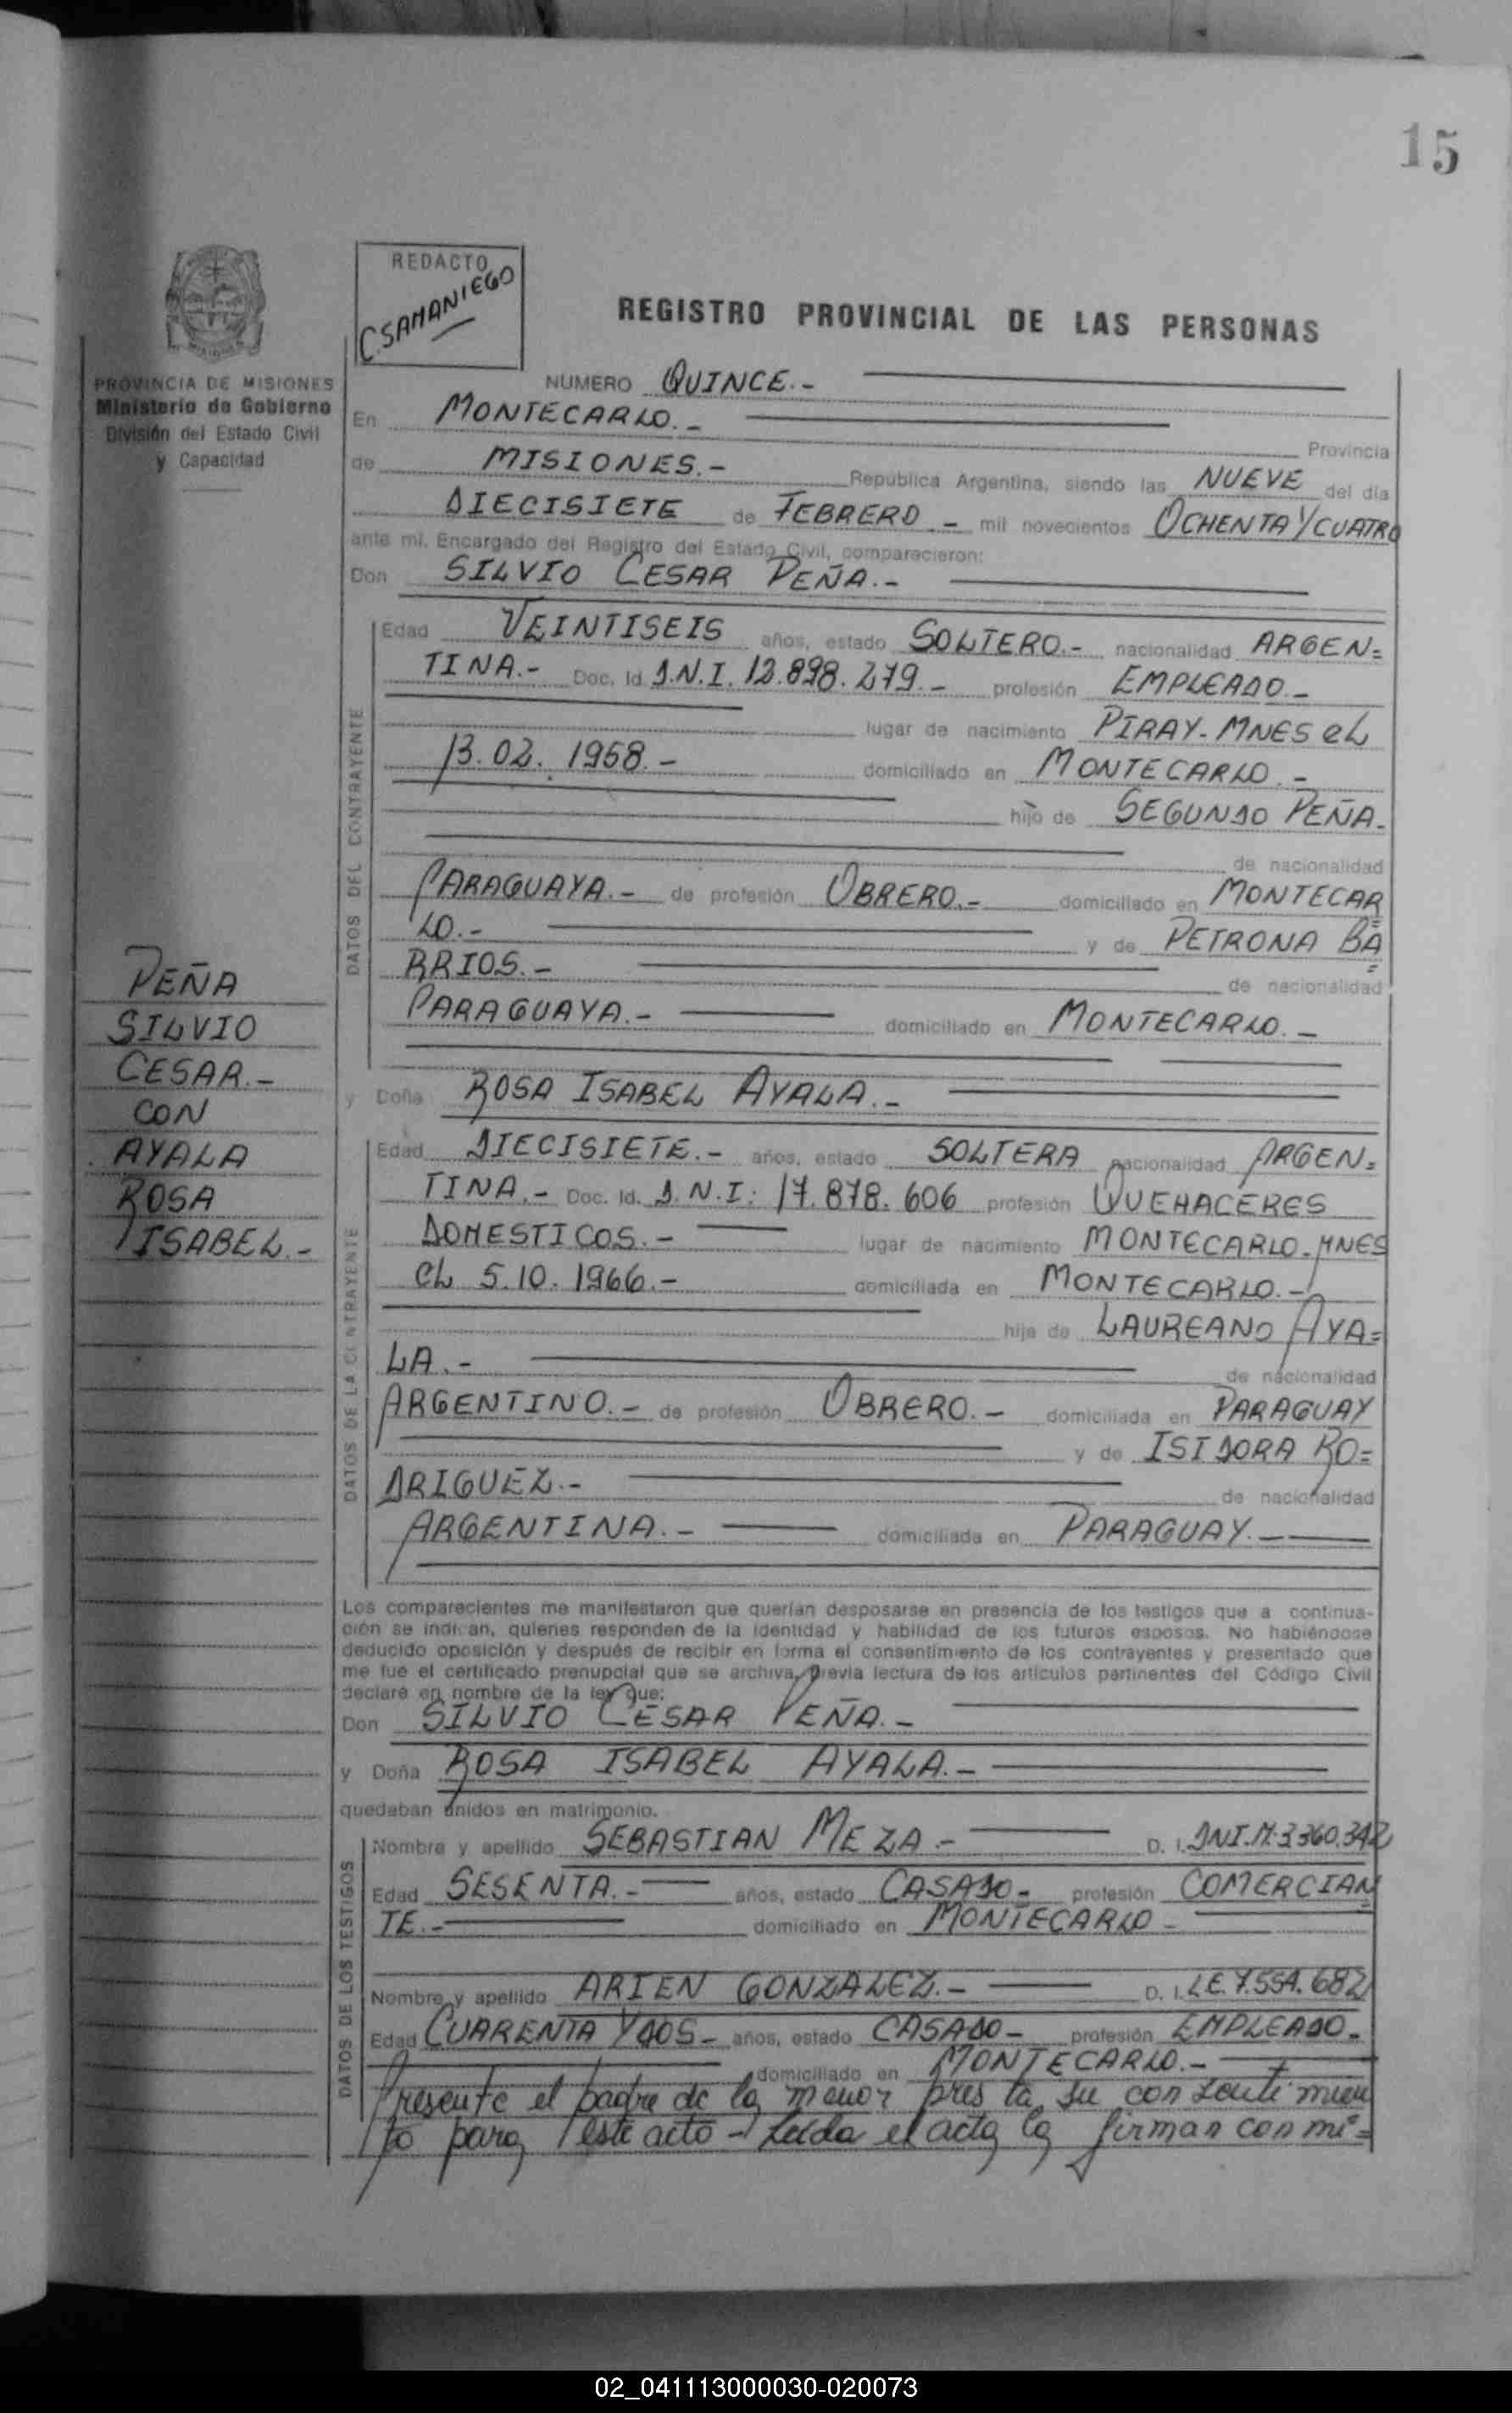 15
REDACTO
C. SAMANIEGO
REGISTRO PROVINCIAL DE LAS PERSONAS
PROVINCIA DE MISIONES
Ministerio de Gobierno
División del Estado Civil
y Capacidad
NUMERO QUINCE.-
En MONTECARLO.-
Provincia
de MISIONES.- República Argentina, siendo las NUEVE del día
DIECISIETE de FEBRERO - mil novecientos OCHENTA Y CUATRO
ante mi, Encargado del Registro del Estado Civil, comparecieron:
Don SILVIO CESAR PEÑA.-
DATOS DEL CONTRAYENTE
Edad VEINTISEIS años, estado SOLTERO.- nacionalidad ARGEN=
TINA.- Doc. Id. D.N.I. 12.898.279.- profesión EMPLEADO.-
lugar de nacimiento PIRAY-MNES el
13.02.1958.- domiciliado en MONTECARLO.-
hijo de SEGUNDO PEÑA.
de nacionalidad
PARAGUAYA.- de profesión OBRERO.- domiciliado en MONTECAR=
LO.- y de PETRONA BA=
RRIOS.-
de nacionalidad
PARAGUAYA.- domiciliado en MONTECARLO.-
PEÑA
SILVIO
CESAR.-
CON
AYALA
ROSA
ISABEL.-
y Doña ROSA ISABEL AYALA.-
DATOS DE LA CONTRAYENTE
Edad DIECISIETE.- años, estado SOLTERA nacionalidad ARGEN=
TINA.- Doc. Id. D.N.I: 17.878.606 profesión QUEHACERES
DOMESTICOS.- lugar de nacimiento MONTECARLO-MNES
el 5.10.1966.- domiciliada en MONTECARLO.-
hija de LAUREANO AYA=
LA.- de nacionalidad
ARGENTINO.- de profesión OBRERO.- domiciliada en PARAGUAY
y de ISIDORA RO=
DRIGUEZ.- de nacionalidad
ARGENTINA.- domiciliada en PARAGUAY.-
Los comparecientes me manifestaron que querían desposarse en presencia de los testigos que a continua-
ción se indican, quienes responden de la identidad y habilidad de los futuros esposos. No habiéndose
deducido oposición y después de recibir en forma el consentimiento de los contrayentes y presentado que
me fue el certificado prenupcial que se archiva, previa lectura de los artículos pertinentes del Código Civil
declaré en nombre de la ley que:
Don SILVIO CESAR PEÑA.-
y Doña ROSA ISABEL AYALA.-
quedaban unidos en matrimonio.
DATOS DE LOS TESTIGOS
Nombre y apellido SEBASTIAN MEZA.- D. I. DNI.M:3360.342
Edad SESENTA.- años, estado CASADO- profesión COMERCIAN=
TE.- domiciliado en MONTECARLO-
Nombre y apellido ARIEN GONZALEZ.- D. I. LE.7.554.682
Edad CUARENTA Y DOS- años, estado CASADO- profesión EMPLEADO.
domiciliado en MONTECARLO.-
Presente el padre de la menor presta su consentimien
to para este acto - Leída el acta la firman con mi=
02_041113000030-020073